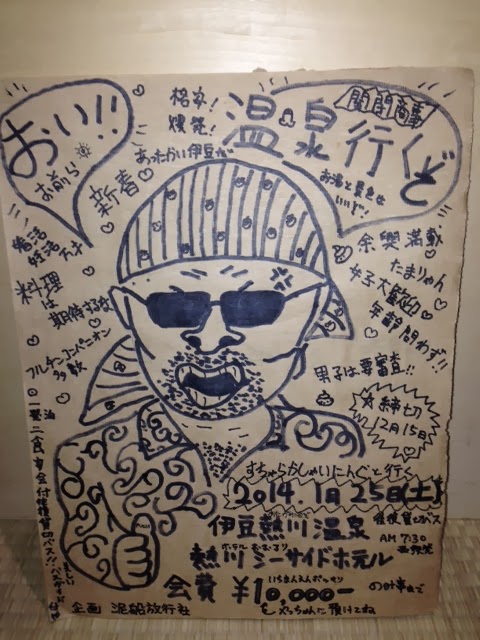 おい!!
お前ら
格安!
爆発!
あったかい伊豆が
新春
温泉行くぞ
お湯と景色
いいぞ!
婚活
妊活
料理
は
期待するな
フルチンコンパニオン
多数
余興満載
たまりゃん
女子大歓迎
年齢問わず!!
男子は要審査!!
〆締切
12月15日
一泊二食宴会付往復貸切バス!!
すちゃらかしゃいにんぐと行く
2014.1月25日(土)
伊豆熱川温泉
往復貸切バス
AM 7:30
ホテル
熱川シーサイドホテル
いちまんえんぽっきり
会費 ¥10,000-
のみ
まで
企画 泥船旅行社
預けてね